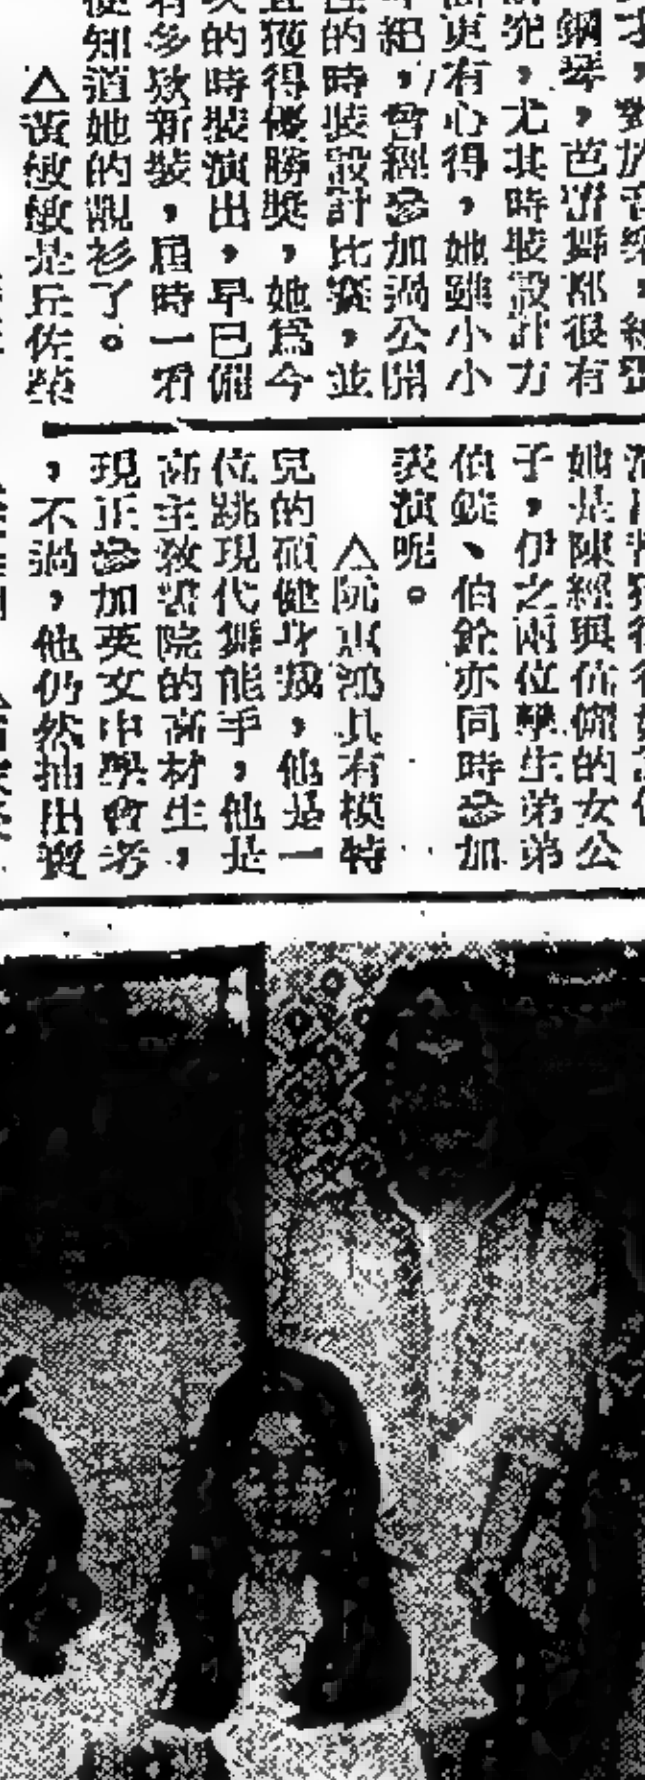 才，對於音樂，
鋼琴，芭蕾舞都很有
究，尤其時裝設計方
更有心得，她雖小小
年紀，曾經參加過公開
性的時裝設計比賽，並
且獲得優勝獎，她為今
次的時裝演出，早已備
有多款新裝，屆時一看
從知道她的靚衫了。
△黃敏敏是丘佐榮
她是陳經與伍備的女公
子，伊之兩位孿生弟弟
伯錠、伯銓亦同時參加
表演呢。
△阮東鴻具有模特
兒的碩健身裁，他是一
位跳現代舞能手，他是
高主教書院的高材生，
現正參加英文中學會考
，不過，他仍然抽出寶